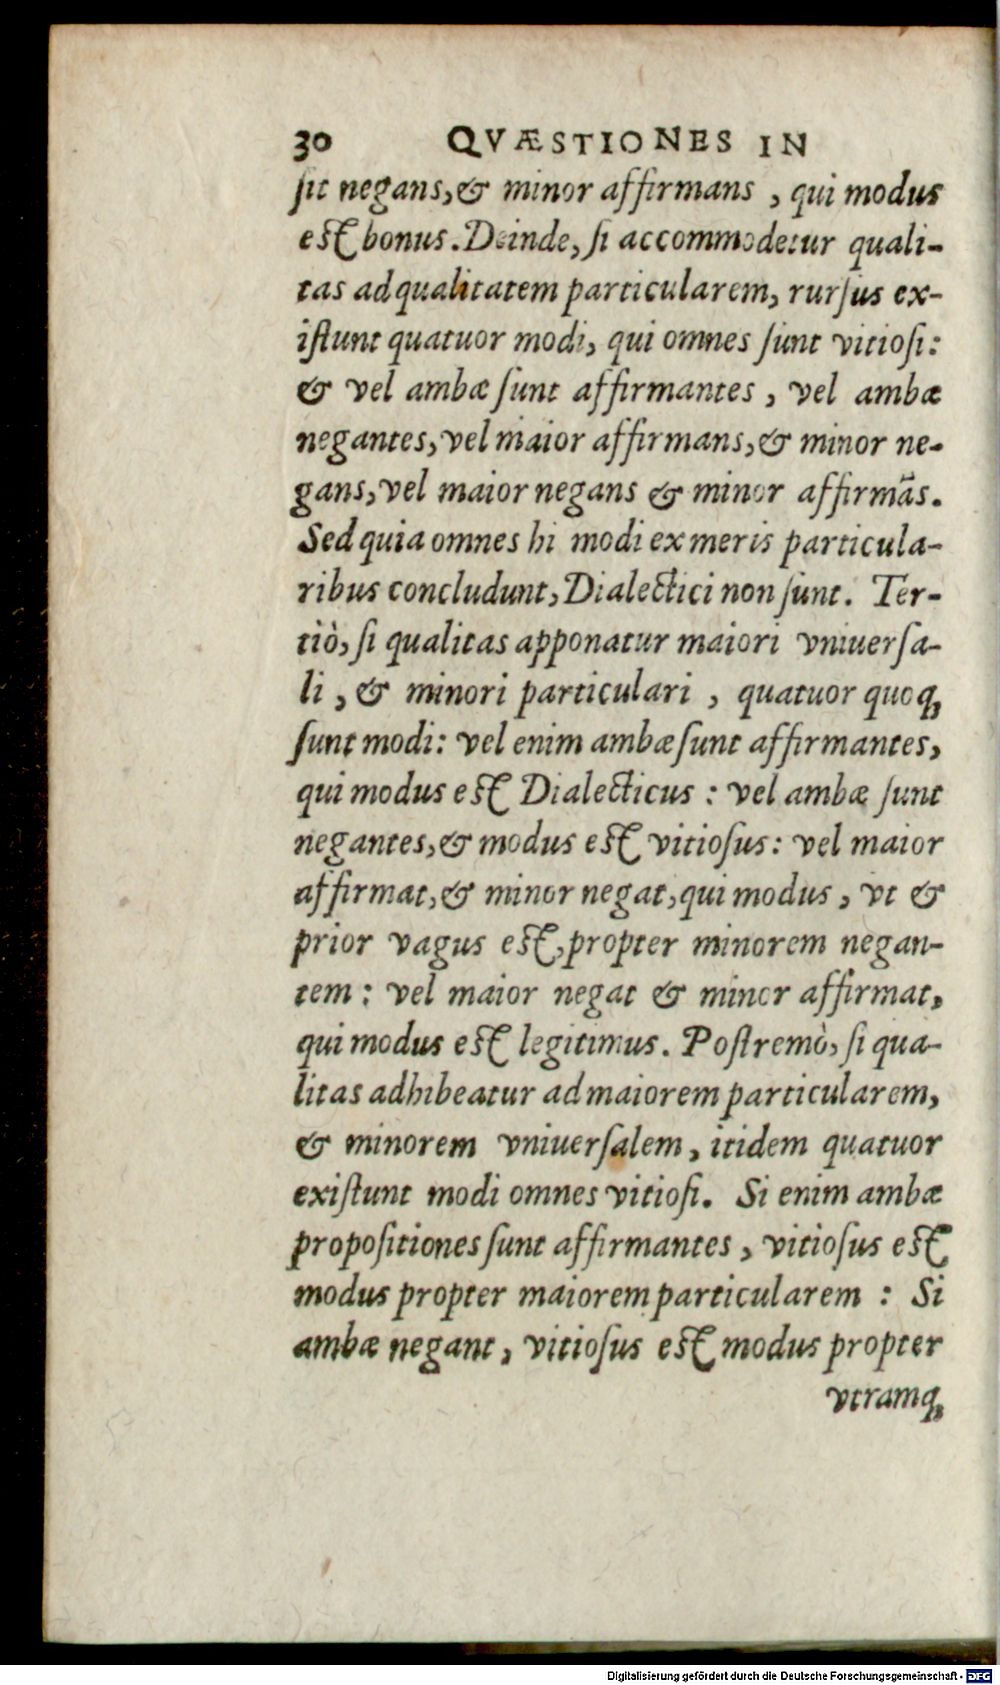 30 QVÆSTIONES IN
ſit negans, & minor affirmans , qui modus
eſt bonus. Deinde, ſi accommodetur quali-
tas ad qualitatem particularem, rurſus ex-
iſtunt quatuor modi, qui omnes ſunt vitioſi:
& vel ambæ ſunt affirmantes , vel ambæ
negantes, vel maior affirmans, & minor ne-
gans, vel maior negans & minor affirmãs.
Sed quia omnes hi modi ex meris particula-
ribus concludunt, Dialectici non ſunt. Ter-
tiò, ſi qualitas apponatur maiori vniuerſa-
li , & minori particulari , quatuor quoq;
ſunt modi: vel enim ambæ ſunt affirmantes,
qui modus eſt Dialecticus : vel ambæ ſunt
negantes, & modus eſt vitioſus: vel maior
affirmat, & minor negat, qui modus , vt &
prior vagus eſt, propter minorem negan-
tem : vel maior negat & minor affirmat,
qui modus eſt legitimus. Poſtremò, ſi qua-
litas adhibeatur ad maiorem particularem,
& minorem vniuerſalem , itidem quatuor
exiſtunt modi omnes vitioſi. Si enim ambæ
propoſitiones ſunt affirmantes , vitioſus eſt
modus propter maiorem particularem : Si
ambæ negant , vitioſus eſt modus propter
vtramq;
Digitalisierung gefördert durch die Deutsche Forschungsgemeinschaft - DFG